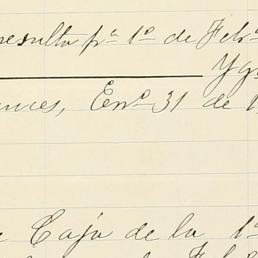 resulta pa. 1o de Febo
Ygu
ances, Eno 31 de 1
e Caja de la 1a